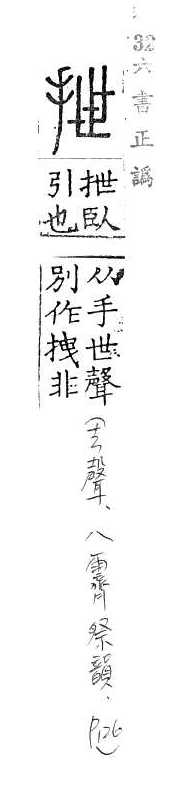 32六書正譌
抴
抴臥
引也
从手世聲
別作拽非
(去聲、八霽祭韻、P126)